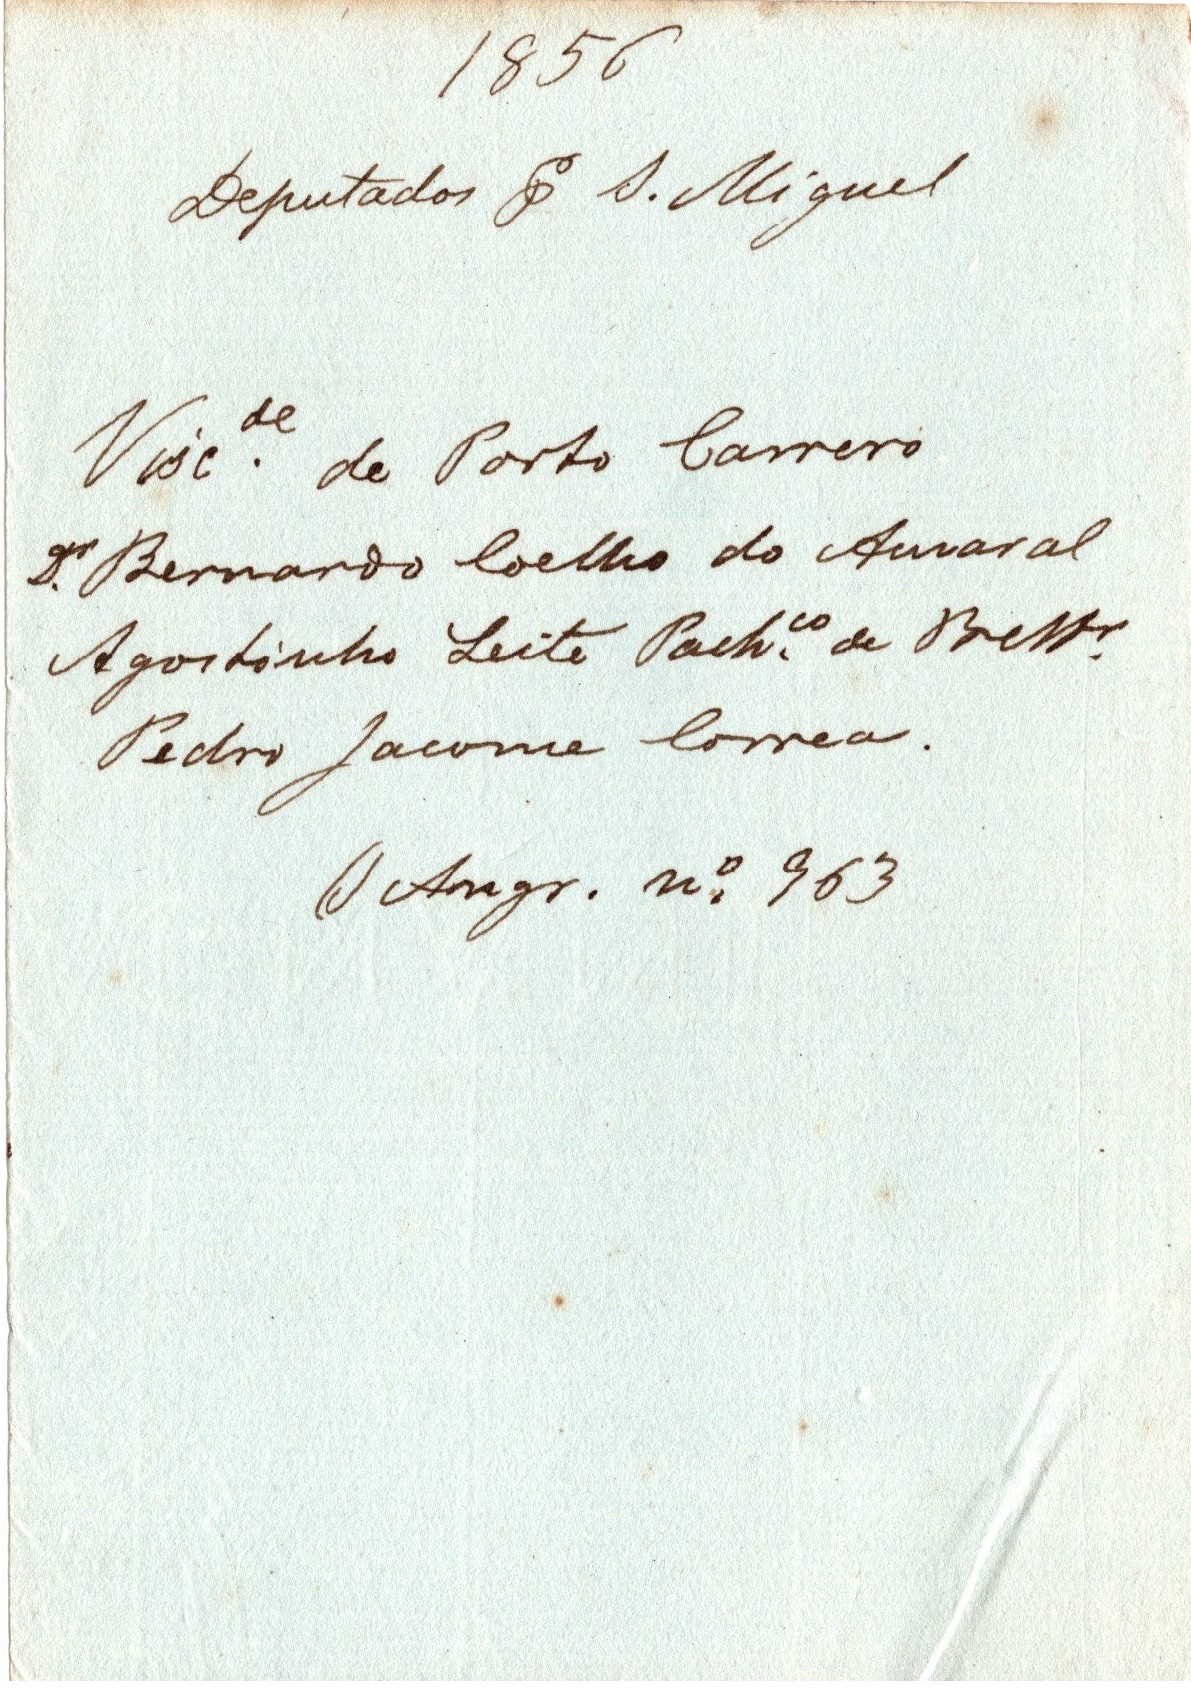 1856
Deputados pº S. Miguel
Visc.de de Porto Carrero
Dr. Bernardo Coelho do Amaral
Agostinho Leite Pach.co de Bettr.
Pedro Jacome Correa.
O Angr. nº. 963